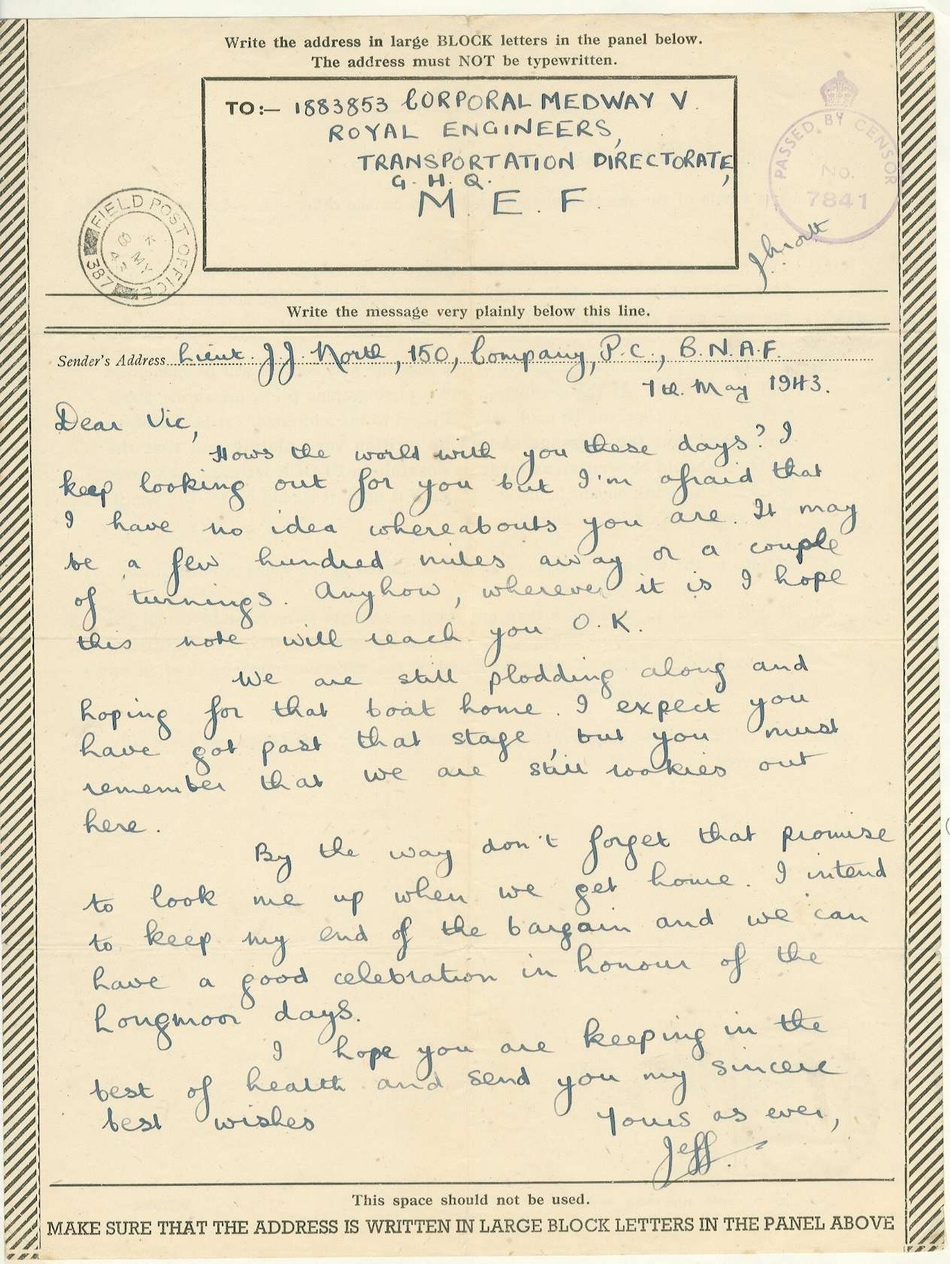 Write the address in large BLOCK letters in the panel below.
The address must NOT be typewritten.
TO:— 1883853 CORPORAL MEDWAY V.
ROYAL ENGINEERS,
TRANSPORTATION DIRECTORATE,
G.H.Q.
M.E.F.
PASSED BY CENSOR
No.
7841
FIELD POST OFFICE
387
K
8 MY
43
Write the message very plainly below this line.
Sender's Address Lieut. J.J. North, 150, Company, P.C., B.N.A.F.
7th. May 1943.
Dear Vic,
Hows the world with you these days? I
keep looking out for you but I'm afraid that
I have no idea whereabouts you are. It may
be a few hundred miles away or a couple
of turnings. Anyhow, wherever it is I hope
this note will reach you O.K.
We are still plodding along and
hoping for that boat home. I expect you
have got past that stage, but you must
remember that we are still rookies out
here.
By the way don't forget that promise
to look me up when we get home. I intend
to keep my end of the bargain and we can
have a good celebration in honour of the
Longmoor days.
I hope you are keeping in the
best of health and send you my sincere
best wishes
Yours as ever,
Jeff.
This space should not be used.
MAKE SURE THAT THE ADDRESS IS WRITTEN IN LARGE BLOCK LETTERS IN THE PANEL ABOVE